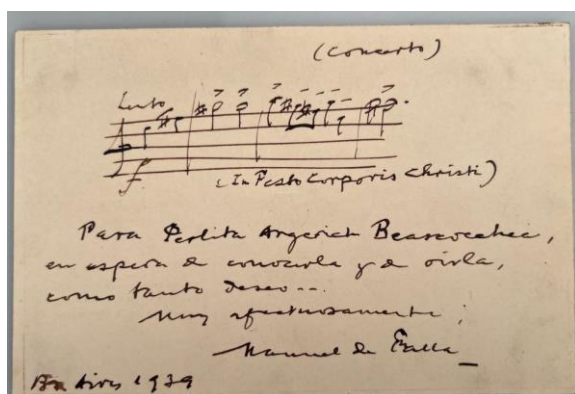 (Concerto)
Lento
f
(In Festo Corporis Christi)
Para Perlita Argerich Beascoechea,
en espera de conocerla y de oirla,
como tanto deseo...
Muy afectuosamente,
Manuel de Falla
1939